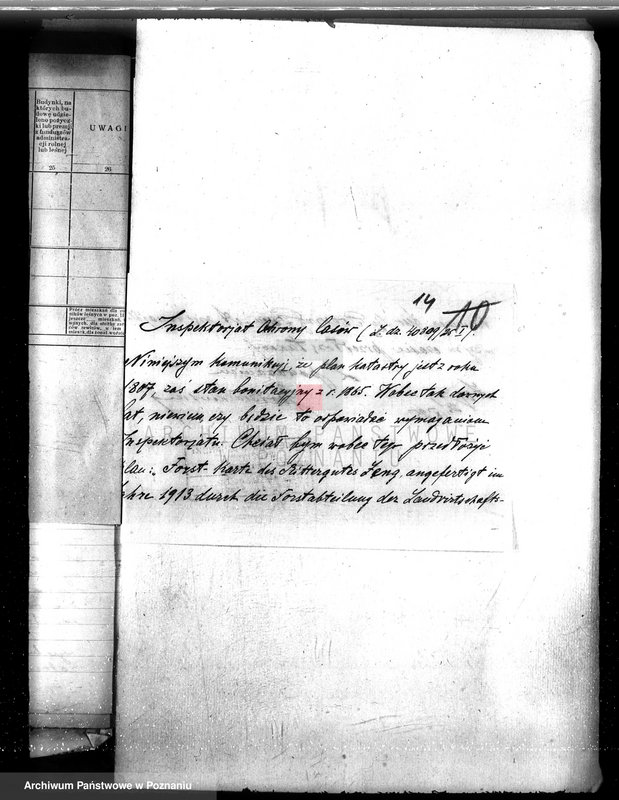 Budynki, na
których bu-
dowę udzie-
lono pożycz-
ki lub premj.
z funduszów
administra-
cji rolnej
lub leśnej
UWAGI
25
26
14
10
Inspektorjat Ochrony Lasów (L. dz.
Niniejszym komunikuję, że plan katastr. jest z roku
1807, zaś stan bonitacyjny z r. 1865. Wobec tak dawnych
lat, niewiem, czy będzie to odpowiadać wymaganiom
Inspektorjatu. Chciał bym wobec tego przedłożyć
plan: Forst Karte des Rittergutes Leng, angefertigt im
Jahre 1913 durch die Forstabteilung der Landwirtschafts-
ARCHIWUM PAŃSTWOWE
W POZNANIU
Archiwum Państwowe w Poznaniu